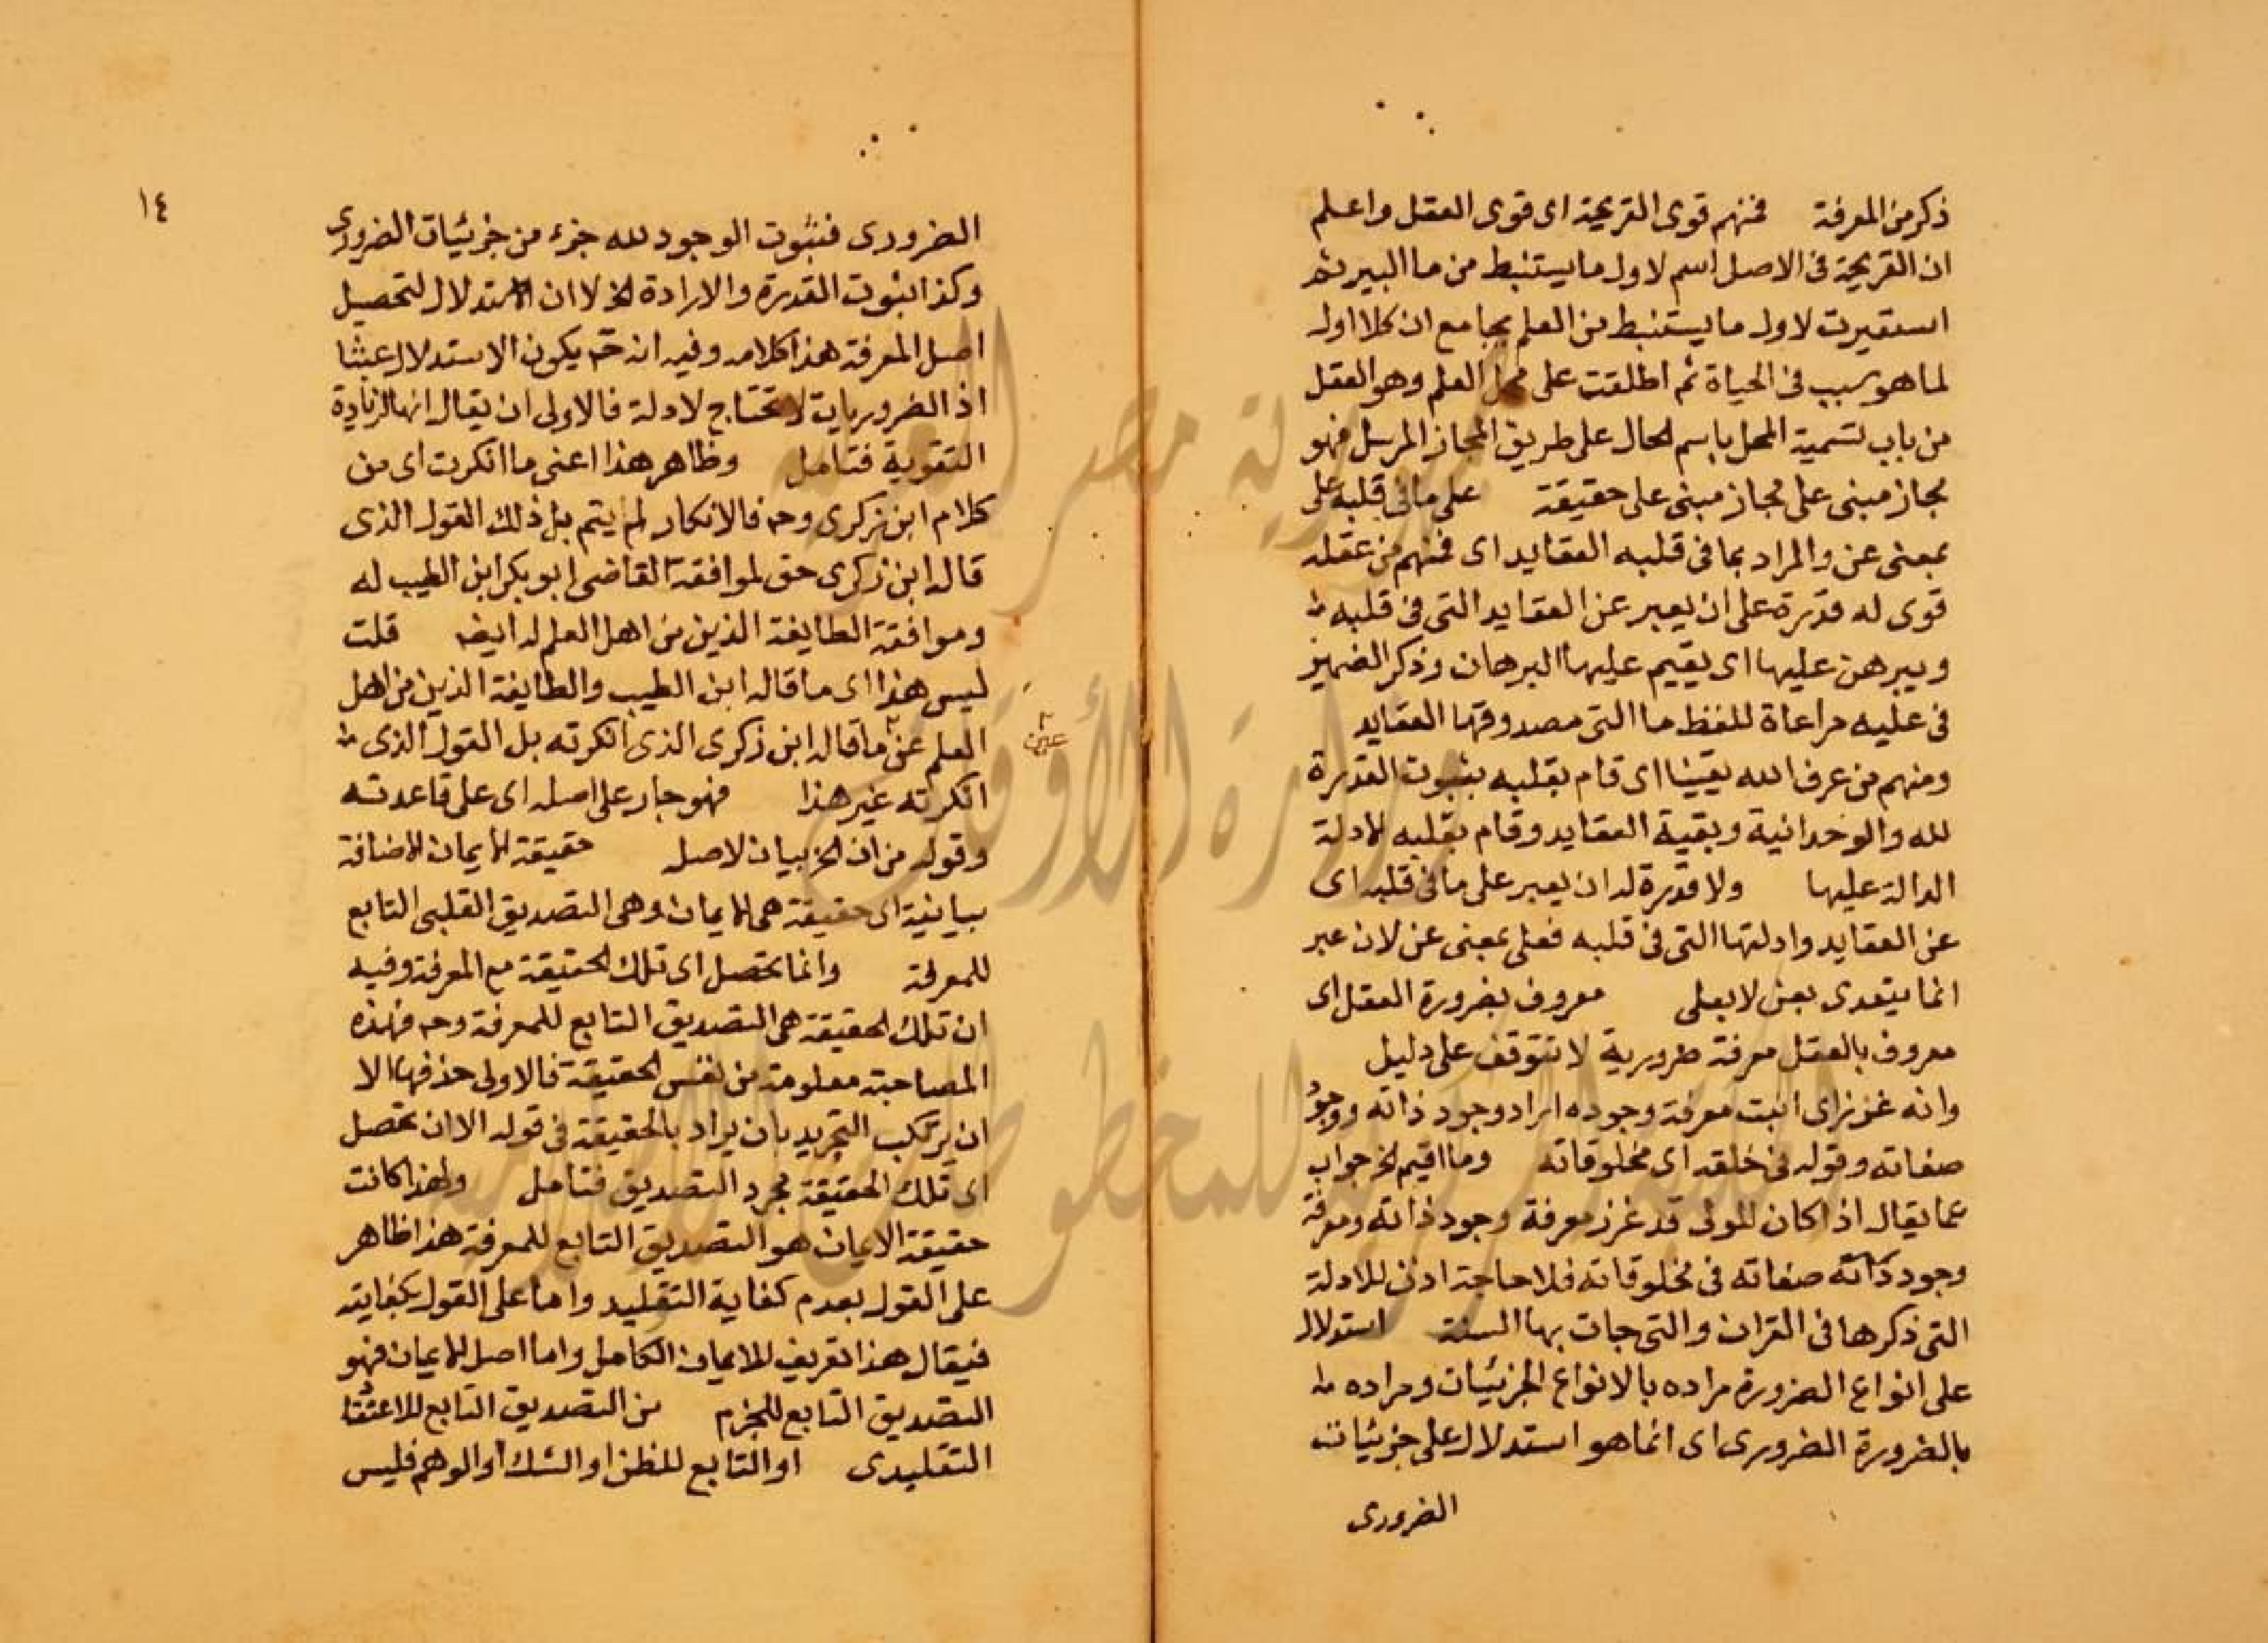 ذكر من المعرفة فمنهم قوى القريحة اى قوى العقل واعلم
ان القريحة فى الاصل اسم لاول ما يستنبط من ما البير ثم
استعيرت لاول ما يستنبط من العلم بجامع ان كلا اول
لما هو سبب فى الحياة ثم اطلقت على محل العلم وهو العقل
من باب تسمية المحل باسم الحال على طريق المجاز المرسل فهو
مجاز مبنى على مجاز مبنى على حقيقة على ما فى قلبه على
بمعنى عن والمراد بما فى قلبه العقايد اى فمنهم من عقله
قوى له قدرة على ان يعبر عن العقايد التى فى قلبه
ويبرهن عليها اى يقيم عليها البرهان وذكر الضمير
فى عليه مراعاة للفظ ما التى مصدوقها العقايد
ومنهم من عرف الله يقينا اى قام بقلبه بثبوت القدرة
لله والوحدانية وبقية العقايد وقام بقلبه الادلة
الدالة عليها ولا قدرة له ان يعبر على ما فى قلبه اى
عن العقايد وادلتها التى فى قلبه فعلى بمعنى عن لان عبر
انما يتعدى بعن لا بعلى معروف بضرورة العقل اى
معروف بالعقل معرفة ضرورية لا تتوقف على دليل
وانه غرز اى اثبت معرفة وجوده اراد وجود ذاته ووجود
صفاته وقوله فى خلقه اى مخلوقاته وما اقيم الخ جواب
عما يقال اذا كان المولى قد غرز معرفة وجود ذاته ومعرفة
وجود صفاته فى مخلوقاته فلا حاجة اذن للادلة
التى ذكرها فى القران والتى جات بها السنة استدلال
على انواع الضرورة مراده بالانواع الجزئيات ومراده
بالضرورة الضرورى اى انما هو استدلال على جزئيات
الضرورى
١٤
الضرورى فثبوت الوجود لله جزء من جزئيات الضرورى
وكذا ثبوت القدرة والارادة الخ لا ان الاستدلال لتحصيل
اصل المعرفة هذا كلامه وفيه انه ح يكون الاستدلال عبثا
اذ الضروريات لا تحتاج لادلة فالاولى ان يقال انها لزيادة
التقوية فتامل وظاهر هذا اعنى ما انكرت اى من
كلام ابن زكرى وح فالانكار لم يتم بل ذلك القول الذى
قاله ابن زكرى حق لموافقة القاضى ابو بكر ابن الطيب له
وموافقة الطايفة الذين من اهل العلم له ايضا قلت
ليس هذا اى ما قاله ابن الطيب والطايفة الذين من اهل
العلم عن ما قاله ابن زكرى الذى انكرته بل القول الذى
عين
انكرته غير هذا فهو جار على اصله اى على قاعدته
وقوله من ان الخ بيان لاصله حقيقة الايمان الاضافة
بيانية اى حقيقة هى الايمان وهى التصديق القلبى التابع
للمعرفة وانما تحصل اى تلك الحقيقة مع المعرفة وفيه
ان تلك الحقيقة هى التصديق التابع للمعرفة وح فهذه
المصاحبة معلومة من نفس الحقيقة فالاولى حذفها الا
ان يرتكب التجريد بان يراد بالحقيقة فى قوله الا ان تحصل
اى تلك الحقيقة مجرد التصديق فتامل ولهذا كانت
حقيقة الايمان هو التصديق التابع للمعرفة هذا ظاهر
على القول بعدم كفاية التقليد واما على القول بكفايته
فيقال هذا تعريف للايمان الكامل واما اصل الايمان فهو
التصديق التابع للجزم من التصديق التابع للاعتقا
التقليدى او التابع للظن او الشك او الوهم فليس
جمهورية مصر العربية
وزارة الأوقاف
المكتبة المركزية للمخطوطات الإسلامية